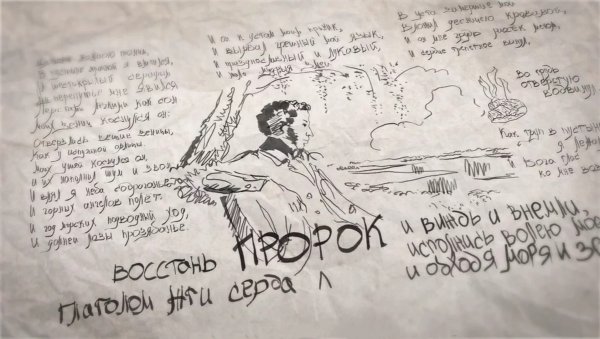 жаждою томим,
В пустыне мрачной я влачился,
И шестикрылый серафим
На перепутье мне явился
Перстами легкими как сон
Моих зениц коснулся он:
Отверзлись вещие зеницы,
Как у испуганной орлицы.
Моих ушей коснулся он,
И их наполнил шум и звон
И внял я неба содроганье
И горних ангелов полет,
И гад морских подводный ход,
И дольней лозы прозябанье
И он к устам моим приник,
И вырвал грешный мой язык,
И празднословный и лукавый,
И жало мудрыя
В уста замершие мои
Вложил десницею кровавой.
И он мне грудь рассек мечом,
И сердце трепетное вынул,
Во грудь
отверстую
водвинул.
Как труп в пустын
я лежал
Бога глас
ко мне воз
восстань ПРОРОК и виждь и внемли,
исполнись волею мое
и обходя моря и зе
Глаголом жги сердца л